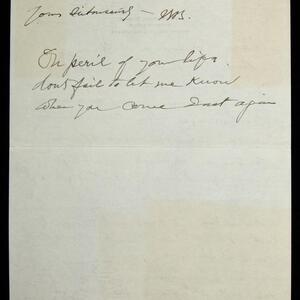 Yours
On peril of your life
dont fail to let me know
when you come East again